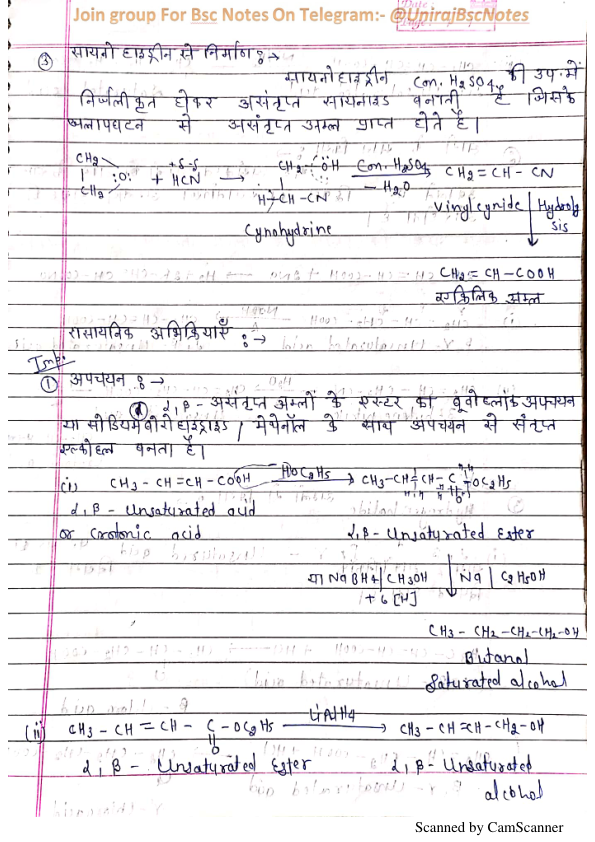 Join group For Bsc Notes On Telegram:- @UnirajBscNotes
③ सायनो हाइड्रीन से निर्माण :→
सायनोहाइड्रीन Con. H2SO4 की उप. में
निर्जलीकृत होकर असंतृप्त सायनाइड बनाती है जिसके
जलापघटन से असंतृप्त अम्ल प्राप्त होते है।
CH2 CH2 - ÖH Con. H2SO4 CH2 = CH - CN
| :O: + +δ -δ HCN → | → - H2O
CH2 H - CH - CN Vinylcynide | Hydroly
Cynohydrine sis
CH2 = CH - COOH
एक्रिलिक अम्ल
रासायनिक अभिक्रियाएँ :→
Imp:
① अपचयन :→
α, β - असंतृप्त अम्लों के एस्टर का बूवोब्लॉक अपचयन
या सोडियम बोरोहाइड्राइड / मेथेनॉल के साथ अपचयन से संतृप्त
एल्कोहल बनता है।
(i) CH3 - CH = CH - COOH HOC2H5 → CH3 - CH = CH - C - OC2H5
α, β - Unsaturated acid
or Crotonic acid α, β - Unsaturated Ester
या NaBH4 / CH3OH ↓ Na / C2H5OH
+ 6 [H]
CH3 - CH2 - CH2 - CH2 - OH
Butanol
Saturated alcohol
(ii) CH3 - CH = CH - C - OC2H5 LiAlH4 → CH3 - CH = CH - CH2 - OH
|| O
α, β - Unsaturated Ester α, β - Unsaturated
alcohol
Scanned by CamScanner